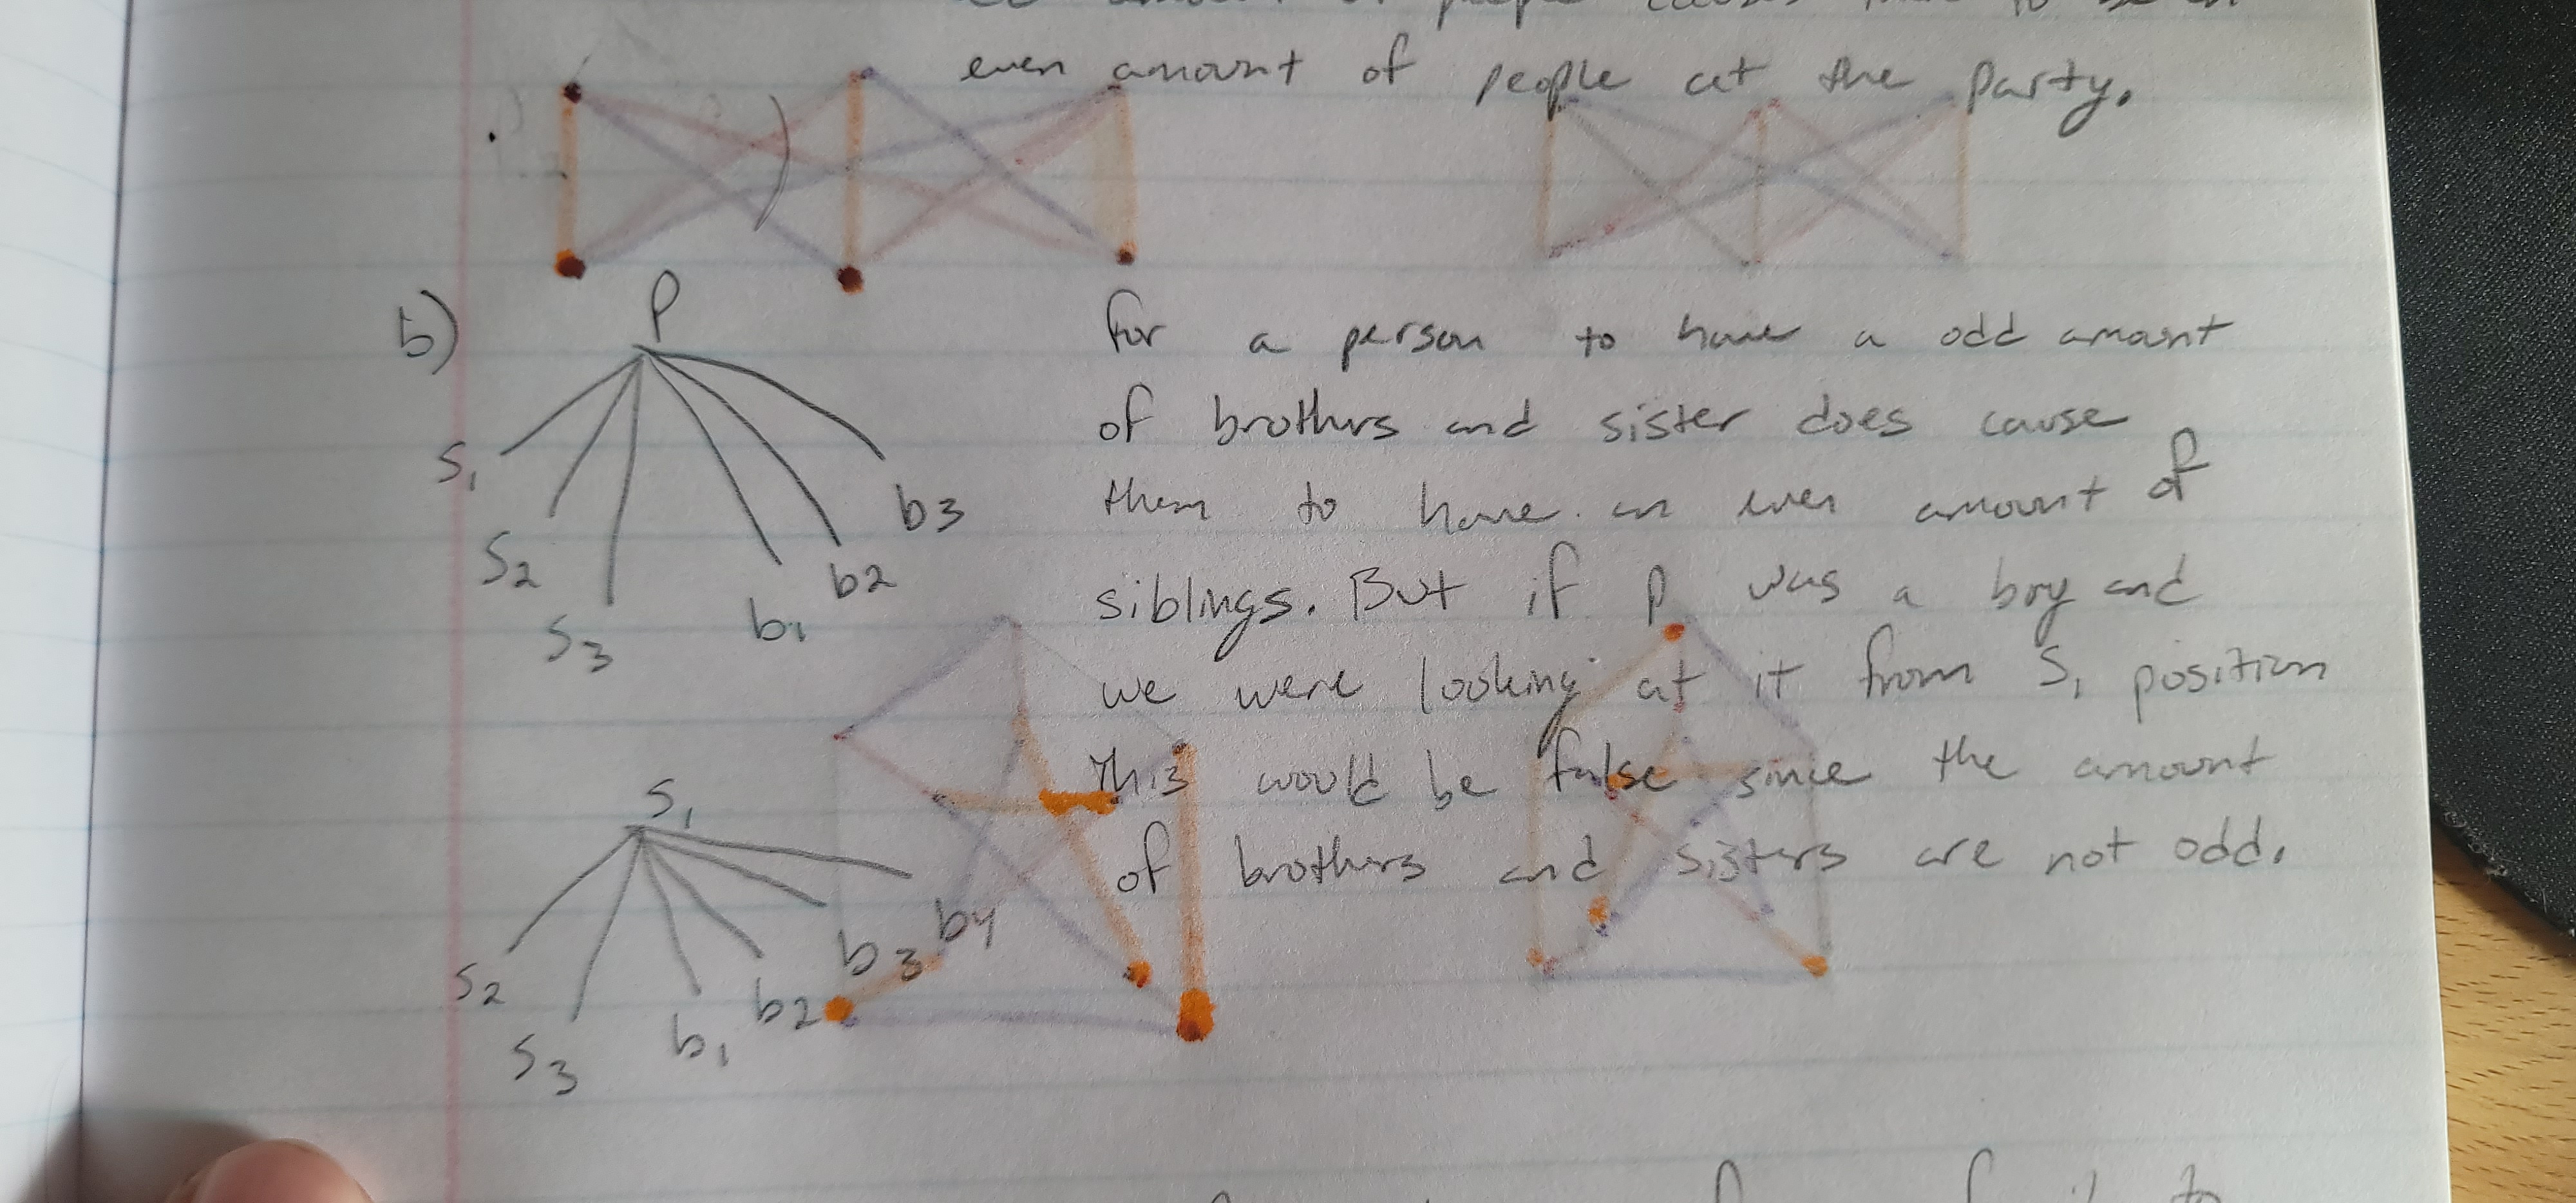 even amount of people at the party.
b)
P
S1
S2
S3
b1
b2
b3
for a person to have a odd amount
of brothers and sister does cause
them to have an even amount of
siblings. But if P was a boy and
we were looking at it from S1 position
This would be false since the amount
of brothers and sisters are not odd.
S1
S2
S3
b1
b2
b3
b4